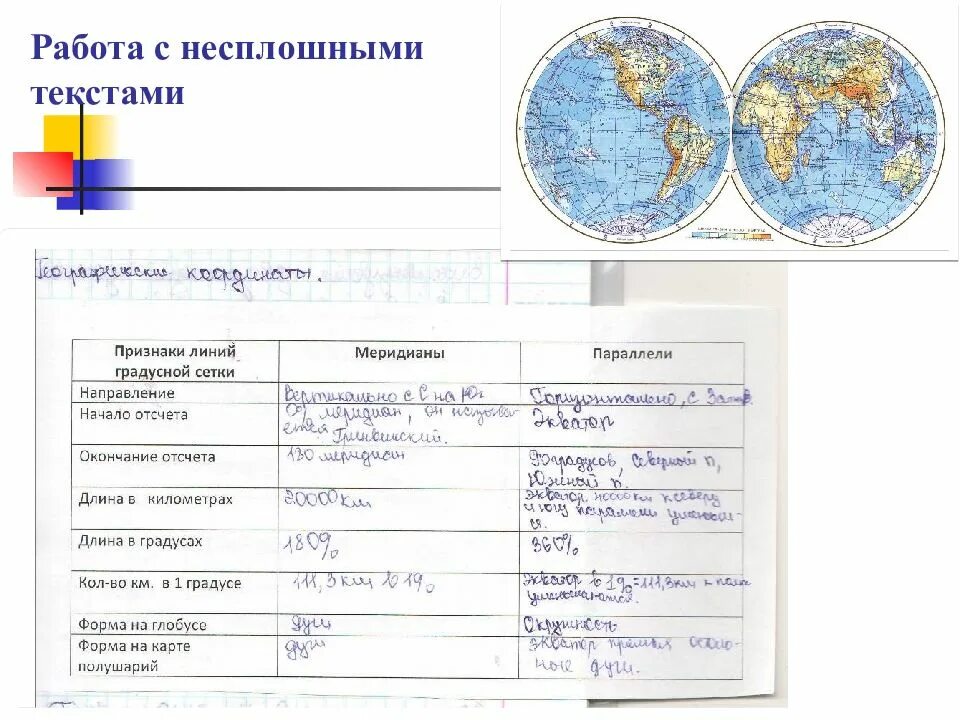 Работа с несплошными
текстами
Географические координаты.
Признаки линий градусной сетки
Меридианы
Параллели
Направление
Вертикально с С на Юг
Горизонтально, с Зап
Начало отсчета
меридиан, он называ
ется Гринвичский.
Экватор
Окончание отсчета
180 меридиан
градусов, северный п,
Южный п.
Длина в километрах
20000 км
Экватор 40000 км к северу
и югу параллели уменьша-
ся.
Длина в градусах
180%
360%
Кол-во км. в 1 градусе
111,3 км в 1%
Экватор в 1% = 111,3 км к полю
уменьшаются.
Форма на глобусе
дуги
Окружность
Форма на карте полушарий
дуги
Экватор прямая осталь-
ные дуги.